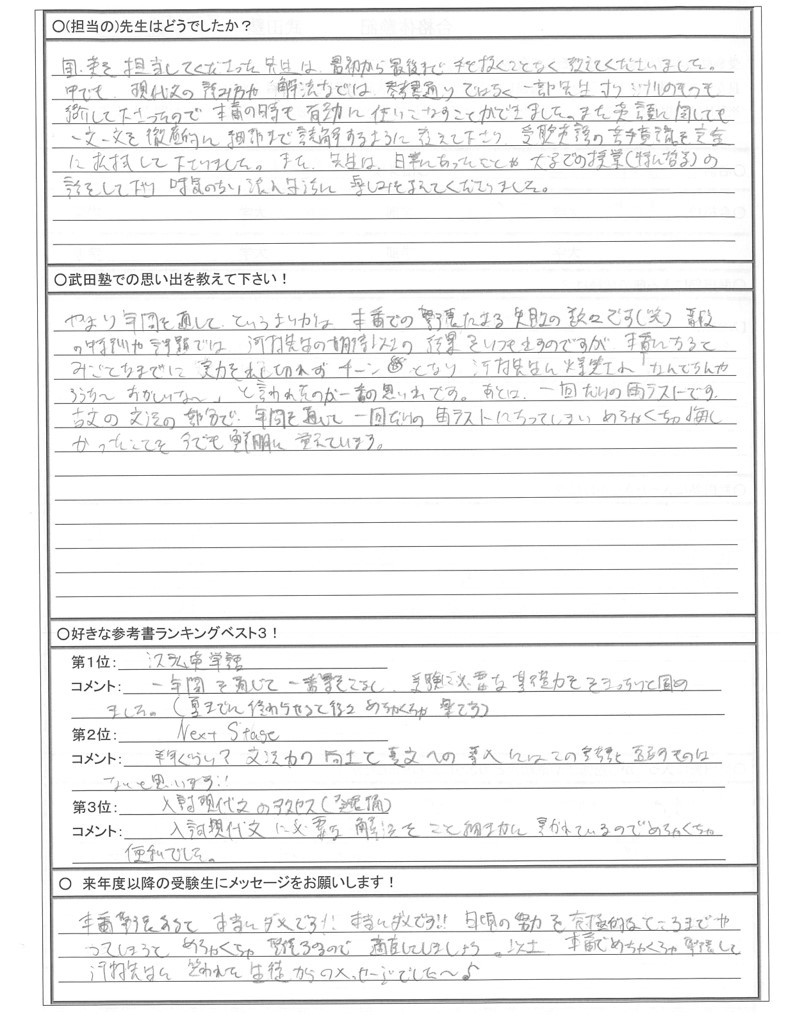 〇(担当の)先生はどうでしたか？
国・英を担当してくださった先生は、最初から最後まで手を抜くことなく教えてくださいました。
中でも、現代文の読み方や解法などでは、参考書通りではなく一部先生オリジナルのものも
紹介して下さったので本番の時も有効に使いこなすことができました。また英語に関しても
一文一文を徹底的に細部まで読解するように教えて下さり 受験英語の
にして下さりました。また、先生は、日常にあったことや大学での授業(特に
話をして下さり 浪人生活に楽しみを与えてくださりました。
〇武田塾での思い出を教えて下さい！
やはり年間を通して、というよりかは 本番での緊張による失敗の数々です(笑) 普段
の特訓や では 河村先生の期待以上の結果をいつも出すのですが 本番になると
みごとなまでに 実力を出し切れず チーン となり 河村先生に爆笑され「なんでなんや
ろうな～ おかしいな～」と言われたのが一番の思い出です。あとは、一回だけの ラストです。
古文の文法の部分で、年間を通して一回だけの ラストになってしまい めちゃくちゃ悔し
かったことを 今でも鮮明に覚えています。
〇好きな参考書ランキングベスト３！
第１位: システム英単語
コメント: 一年間を通じて 一番 、受験に必要な基礎力を きっちりと固め
ました。(夏までに終わらせると後々めちゃくちゃ楽です)
第２位: Next Stage
コメント: 文法力の向上と 英文への導入にはこの参考書と 互角のものは
ないと思います!!
第３位: 入試現代文へのアクセス(発展編)
コメント: 入試現代文に必要な解法をこと細かに書かれているのでめちゃくちゃ
便利でした。
〇 来年度以降の受験生にメッセージをお願いします！
本番緊張すると 本当にダメです!! 本当にダメです!! 日頃の努力を究極的なところまでや
ってしまうと めちゃくちゃ緊張するので 適度にしましょう。以上 本番でめちゃくちゃ緊張して
河村先生に笑われた生徒からのメッセージでした～♪